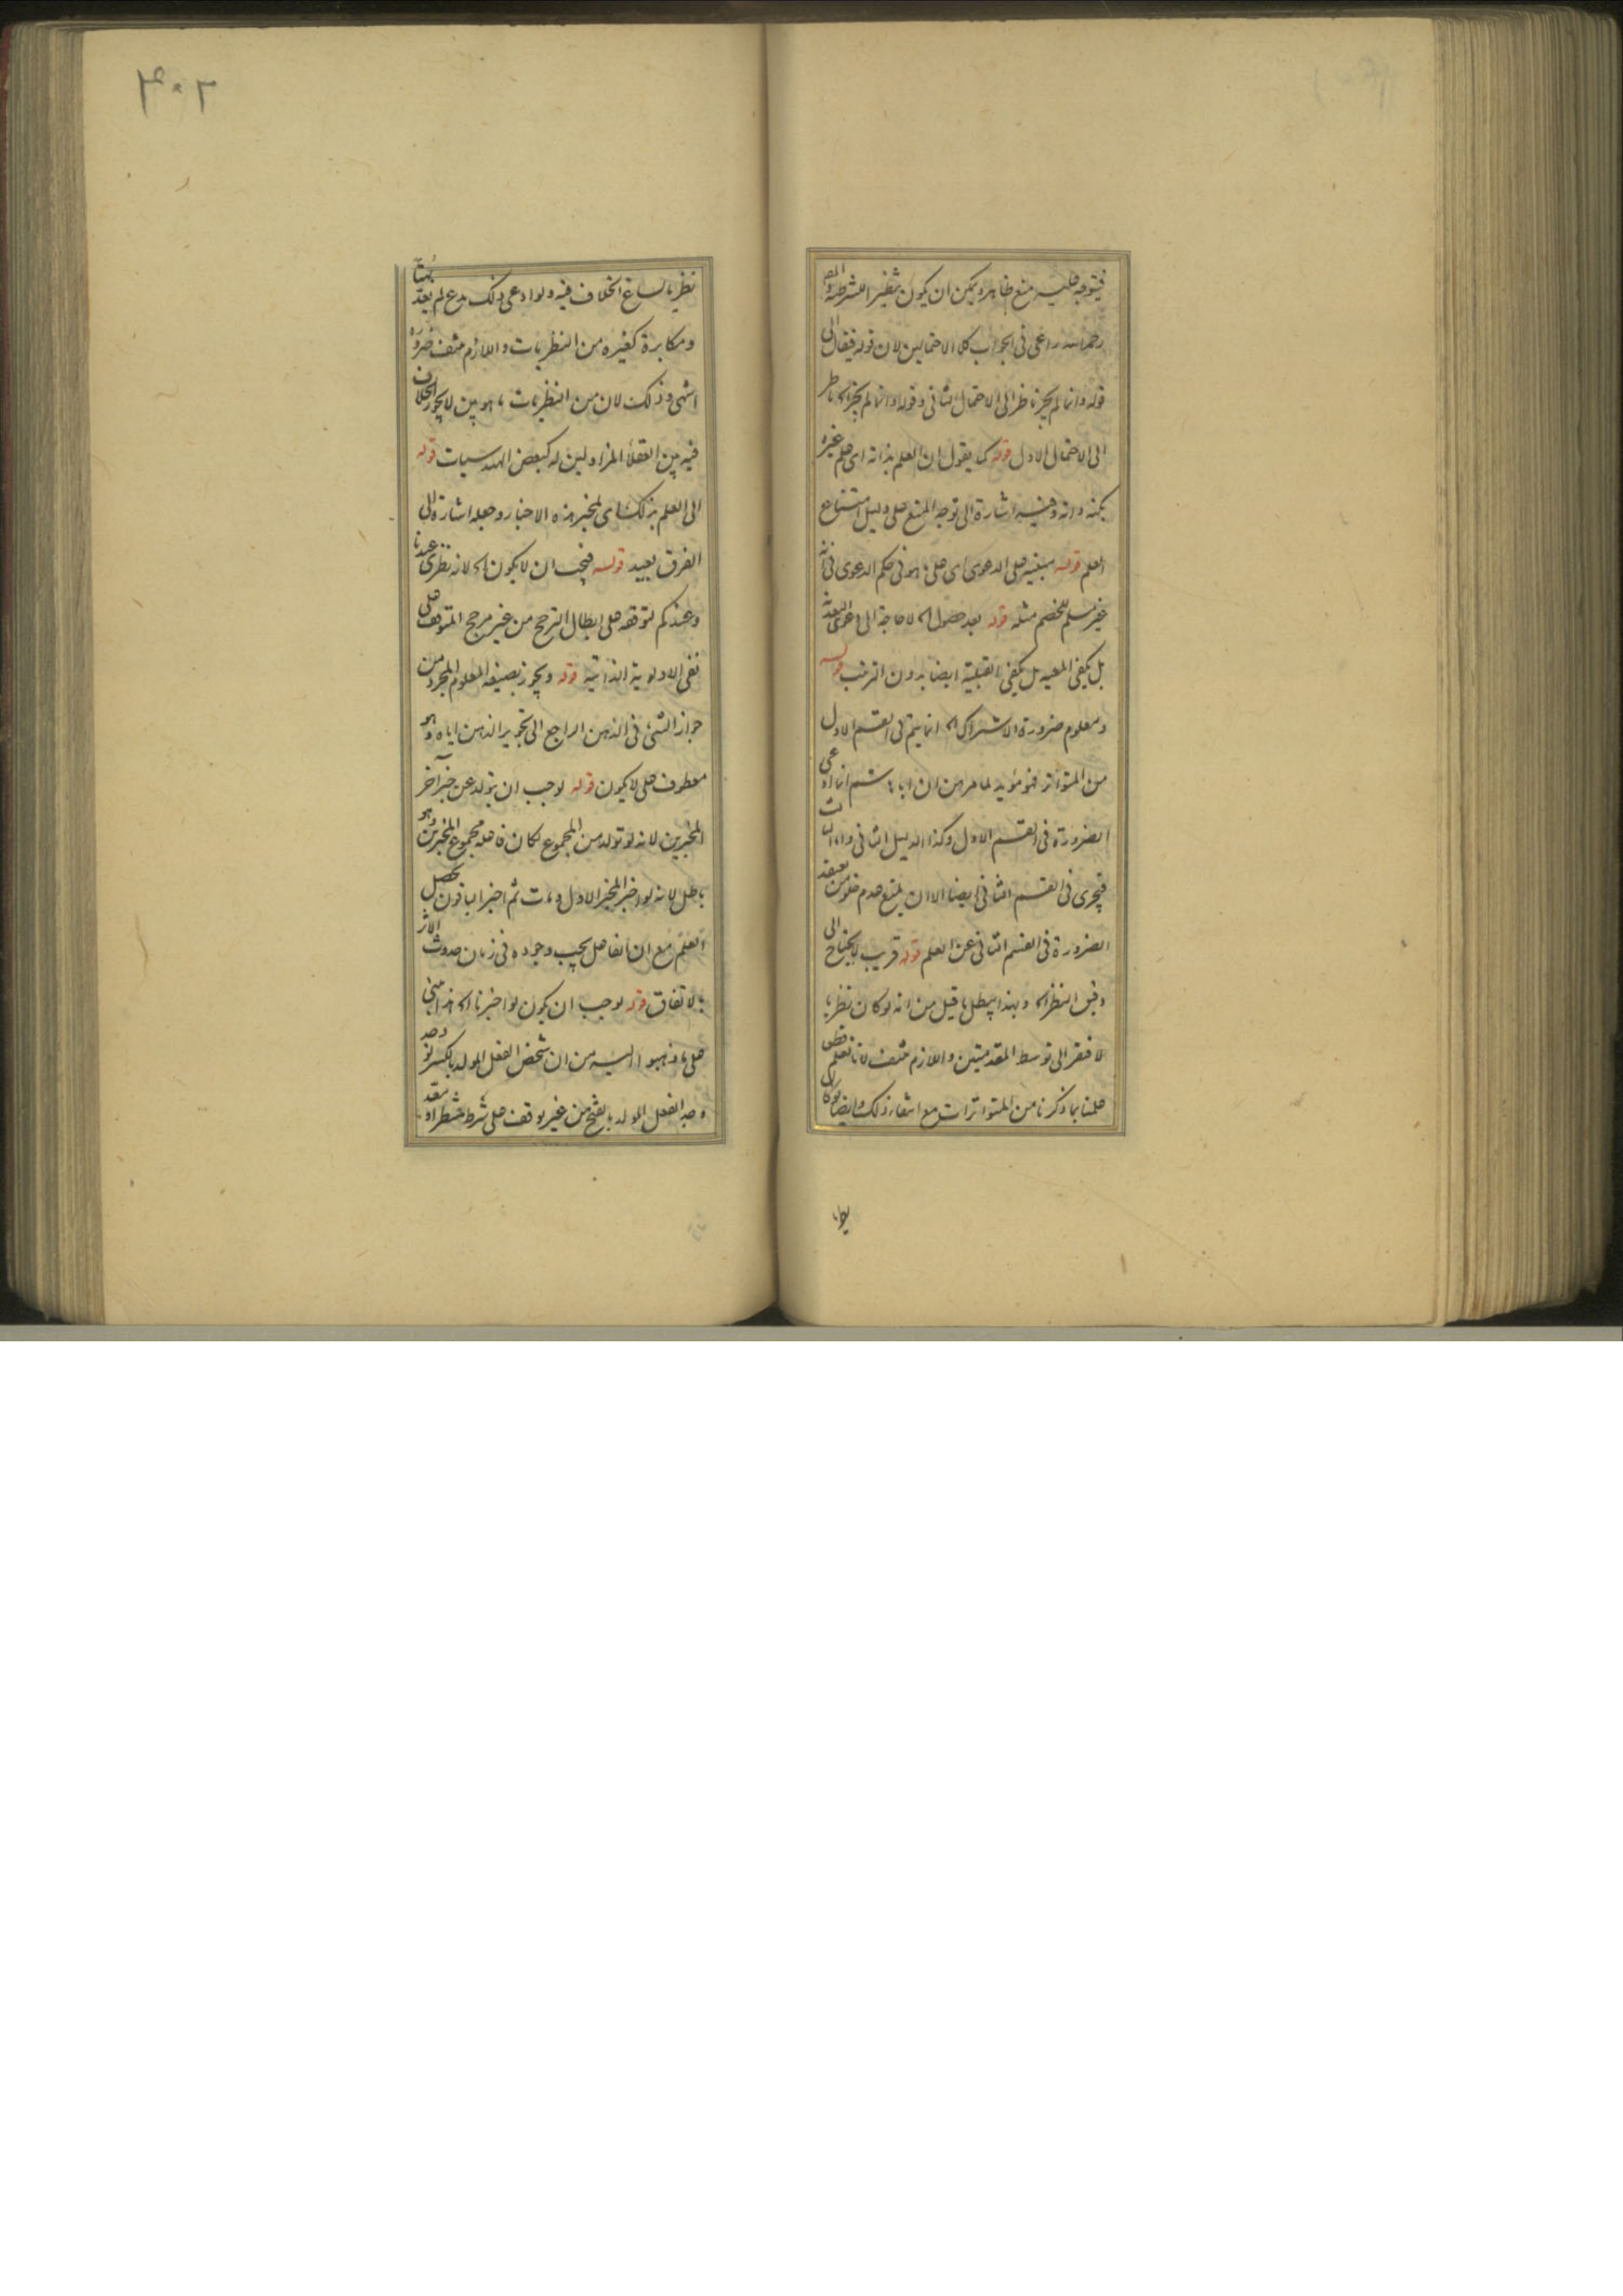 فيتوجه عليه منع ظاهر ويمكن ان يكون نظير الشرطية والمص
رحمه الله راعى فى الجواب كلا الاحتمالين لان قوله فيقال الى
قوله وانما لم يجز ناظر الى الاحتمال الثانى وقوله وانما لم يجز اه ناظر
الى الاحتمال الاول قوله كما يقول ان العلم بذاته اى علم غيره
بكنه ذاته وفيه اشارة الى توجه المنع على دليل امتناع
العلم قوله مبنية على الدعوى اى على ما هو فى حكم الدعوى فى انه
غير مسلم للخصم مثله قوله بعد حصول اه لا حاجة الى دعوى البعدية
بل يكفى المعيه بل يكفى القبلية ايضا بدون الترتب قوله
ومعلوم ضرورة الاشتراك اه انما يتم فى القسم الاول
من المتواتر فهو مؤيد لما مر من ان ابا هاشم انما ادعى
الضرورة فى القسم الاول وكذا الدليل الثانى واما الثالث
فيجرى فى القسم الثانى ايضا الا ان يمنع عدم خلو من يعتقد
الضرورة فى القسم الثانى عن العلم قوله قريب لا يحتاج الى
دقيق النظر اه وبهذا يبطل ما قيل من انه لو كان نظريا
لافتقر الى توسط المقدمتين واللازم منتف لانا نعلم قطعا
علمنا بما ذكرنا من المتواترات مع انتفاء ذلك وايضا لو كان
نظريا
٣٠٢
نظريا لساغ الخلاف فيه ولو ادعى ذلك مدع لم يعد بهتا
ومكابرة كغيره من النظريات واللازم منتف ضرورة
انتهى وذلك لان من النظريات ما هو بين لا يجوز الخلاف
فيه بين العقلاء المزاولين له كبعض الهندسيات قوله
الى العلم بذلك اى لمخبر هذه الاخبار وجعله اشارة الى
الفرق بعيد قوله فيجب ان لا يكون اه لانه نظرى عندنا
وعندكم لتوقفه على ابطال الترجح من غير مرجح المتوقف على
نفى الاولوية الذاتية قوله ويجوز بصيغة المعلوم المجرد من
جواز الشئ فى الذهن الراجع الى تجويز الذهن اياه وهو
معطوف على لا يكون قوله لوجب ان يتولد عن خبر آخر
المخبرين لانه لو تولد من المجموع لكان فاعله مجموع المخبرين وهو
باطل لانه لو اخبر المخبر الاول ومات ثم اخبر الباقون يحصل
العلم مع ان الفاعل يجب وجوده فى زمان حدوث الاثر
بالاتفاق قوله لوجب ان يكون لو اخبرنا اه هذا مبنى
على ما ذهبوا اليه من ان شخص الفعل المولد بالكسر لو وجد
وجد الفعل المولد بالفتح من غير توقف على شرط منتظر او بعد